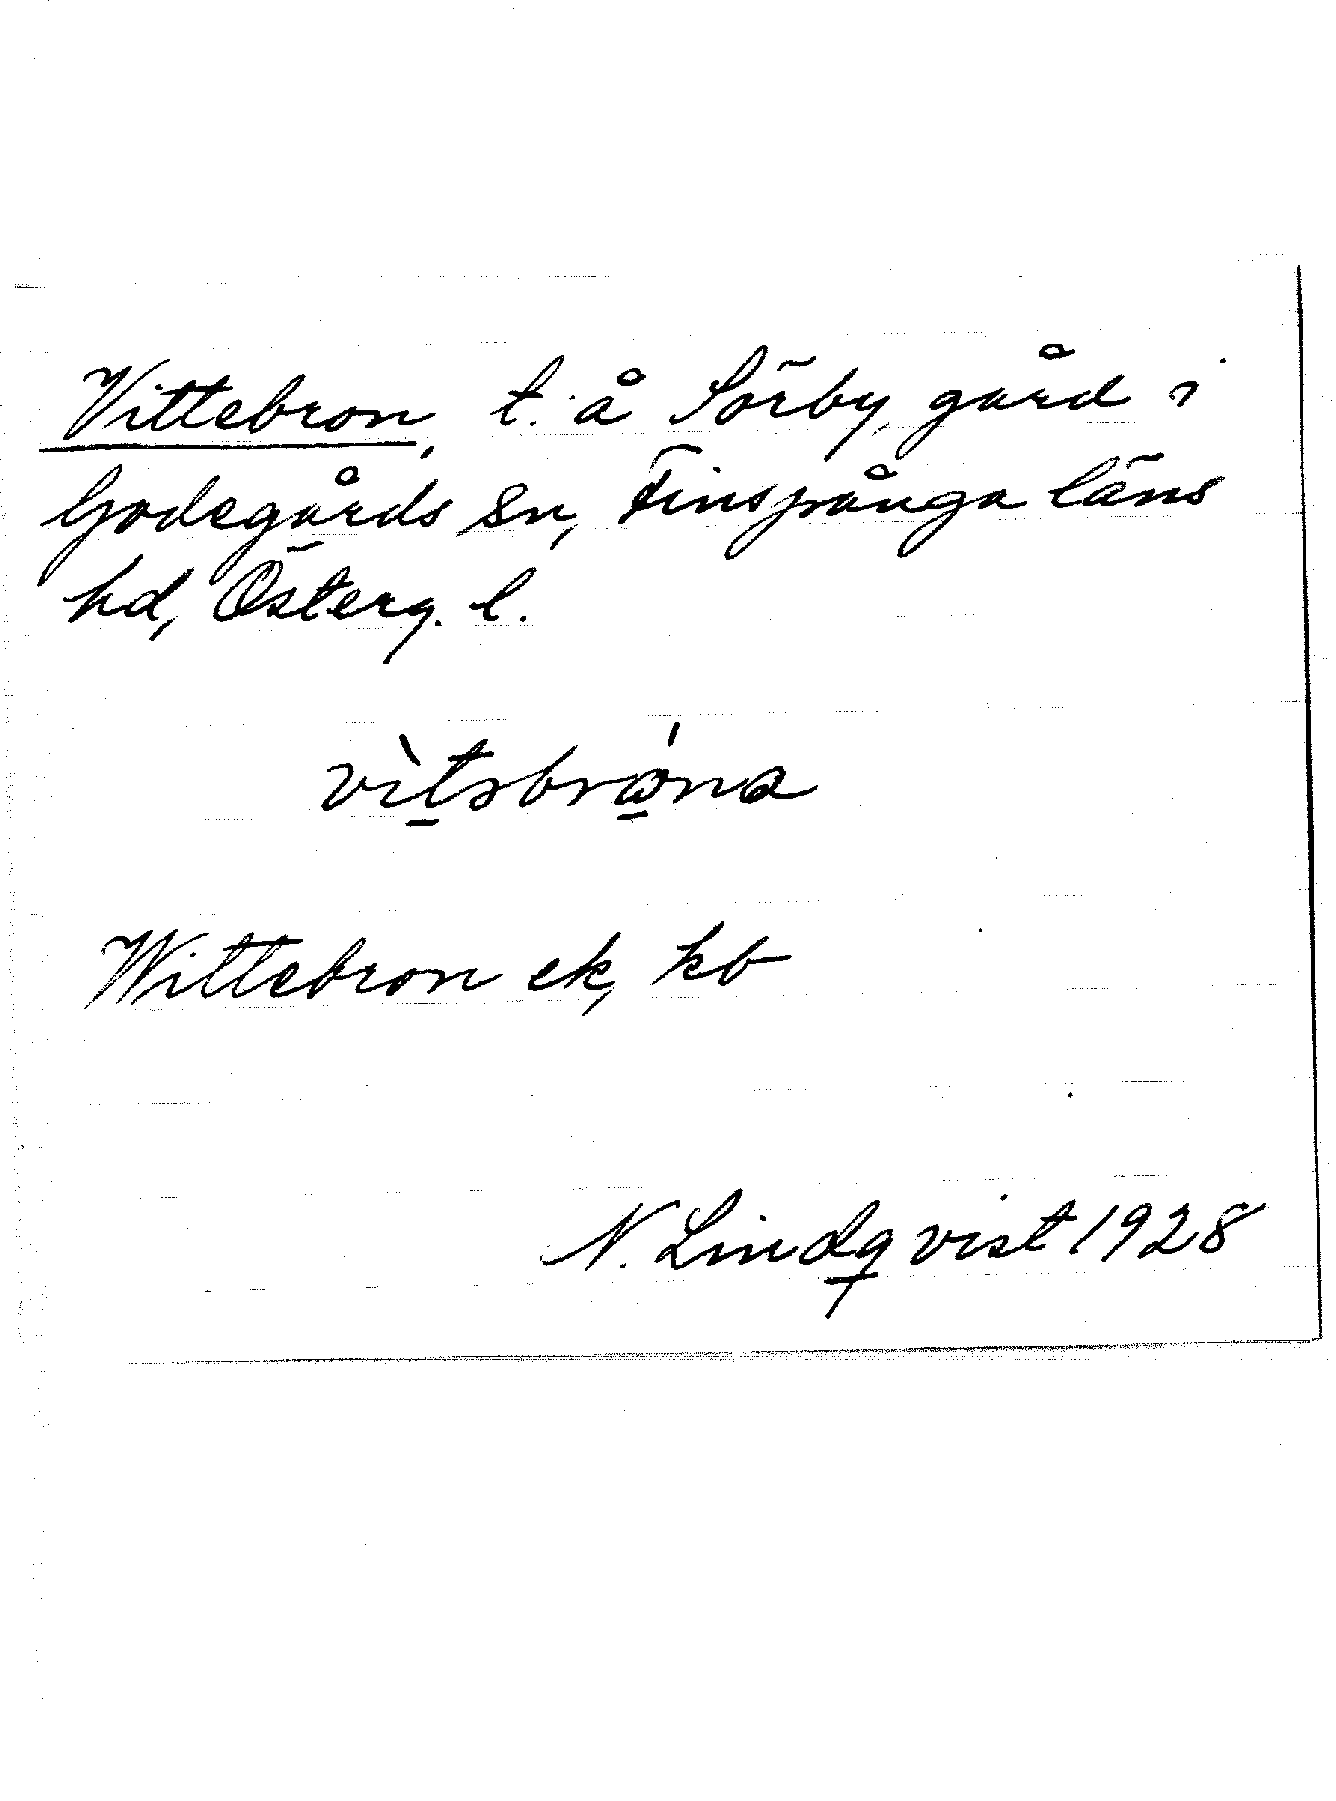 Vittebron, t. å Sörby, gård i
Godegårds sn, Finspånga läns
hd, Österg. l.
Wittebron ek, kb
N. Lindqvist 1928